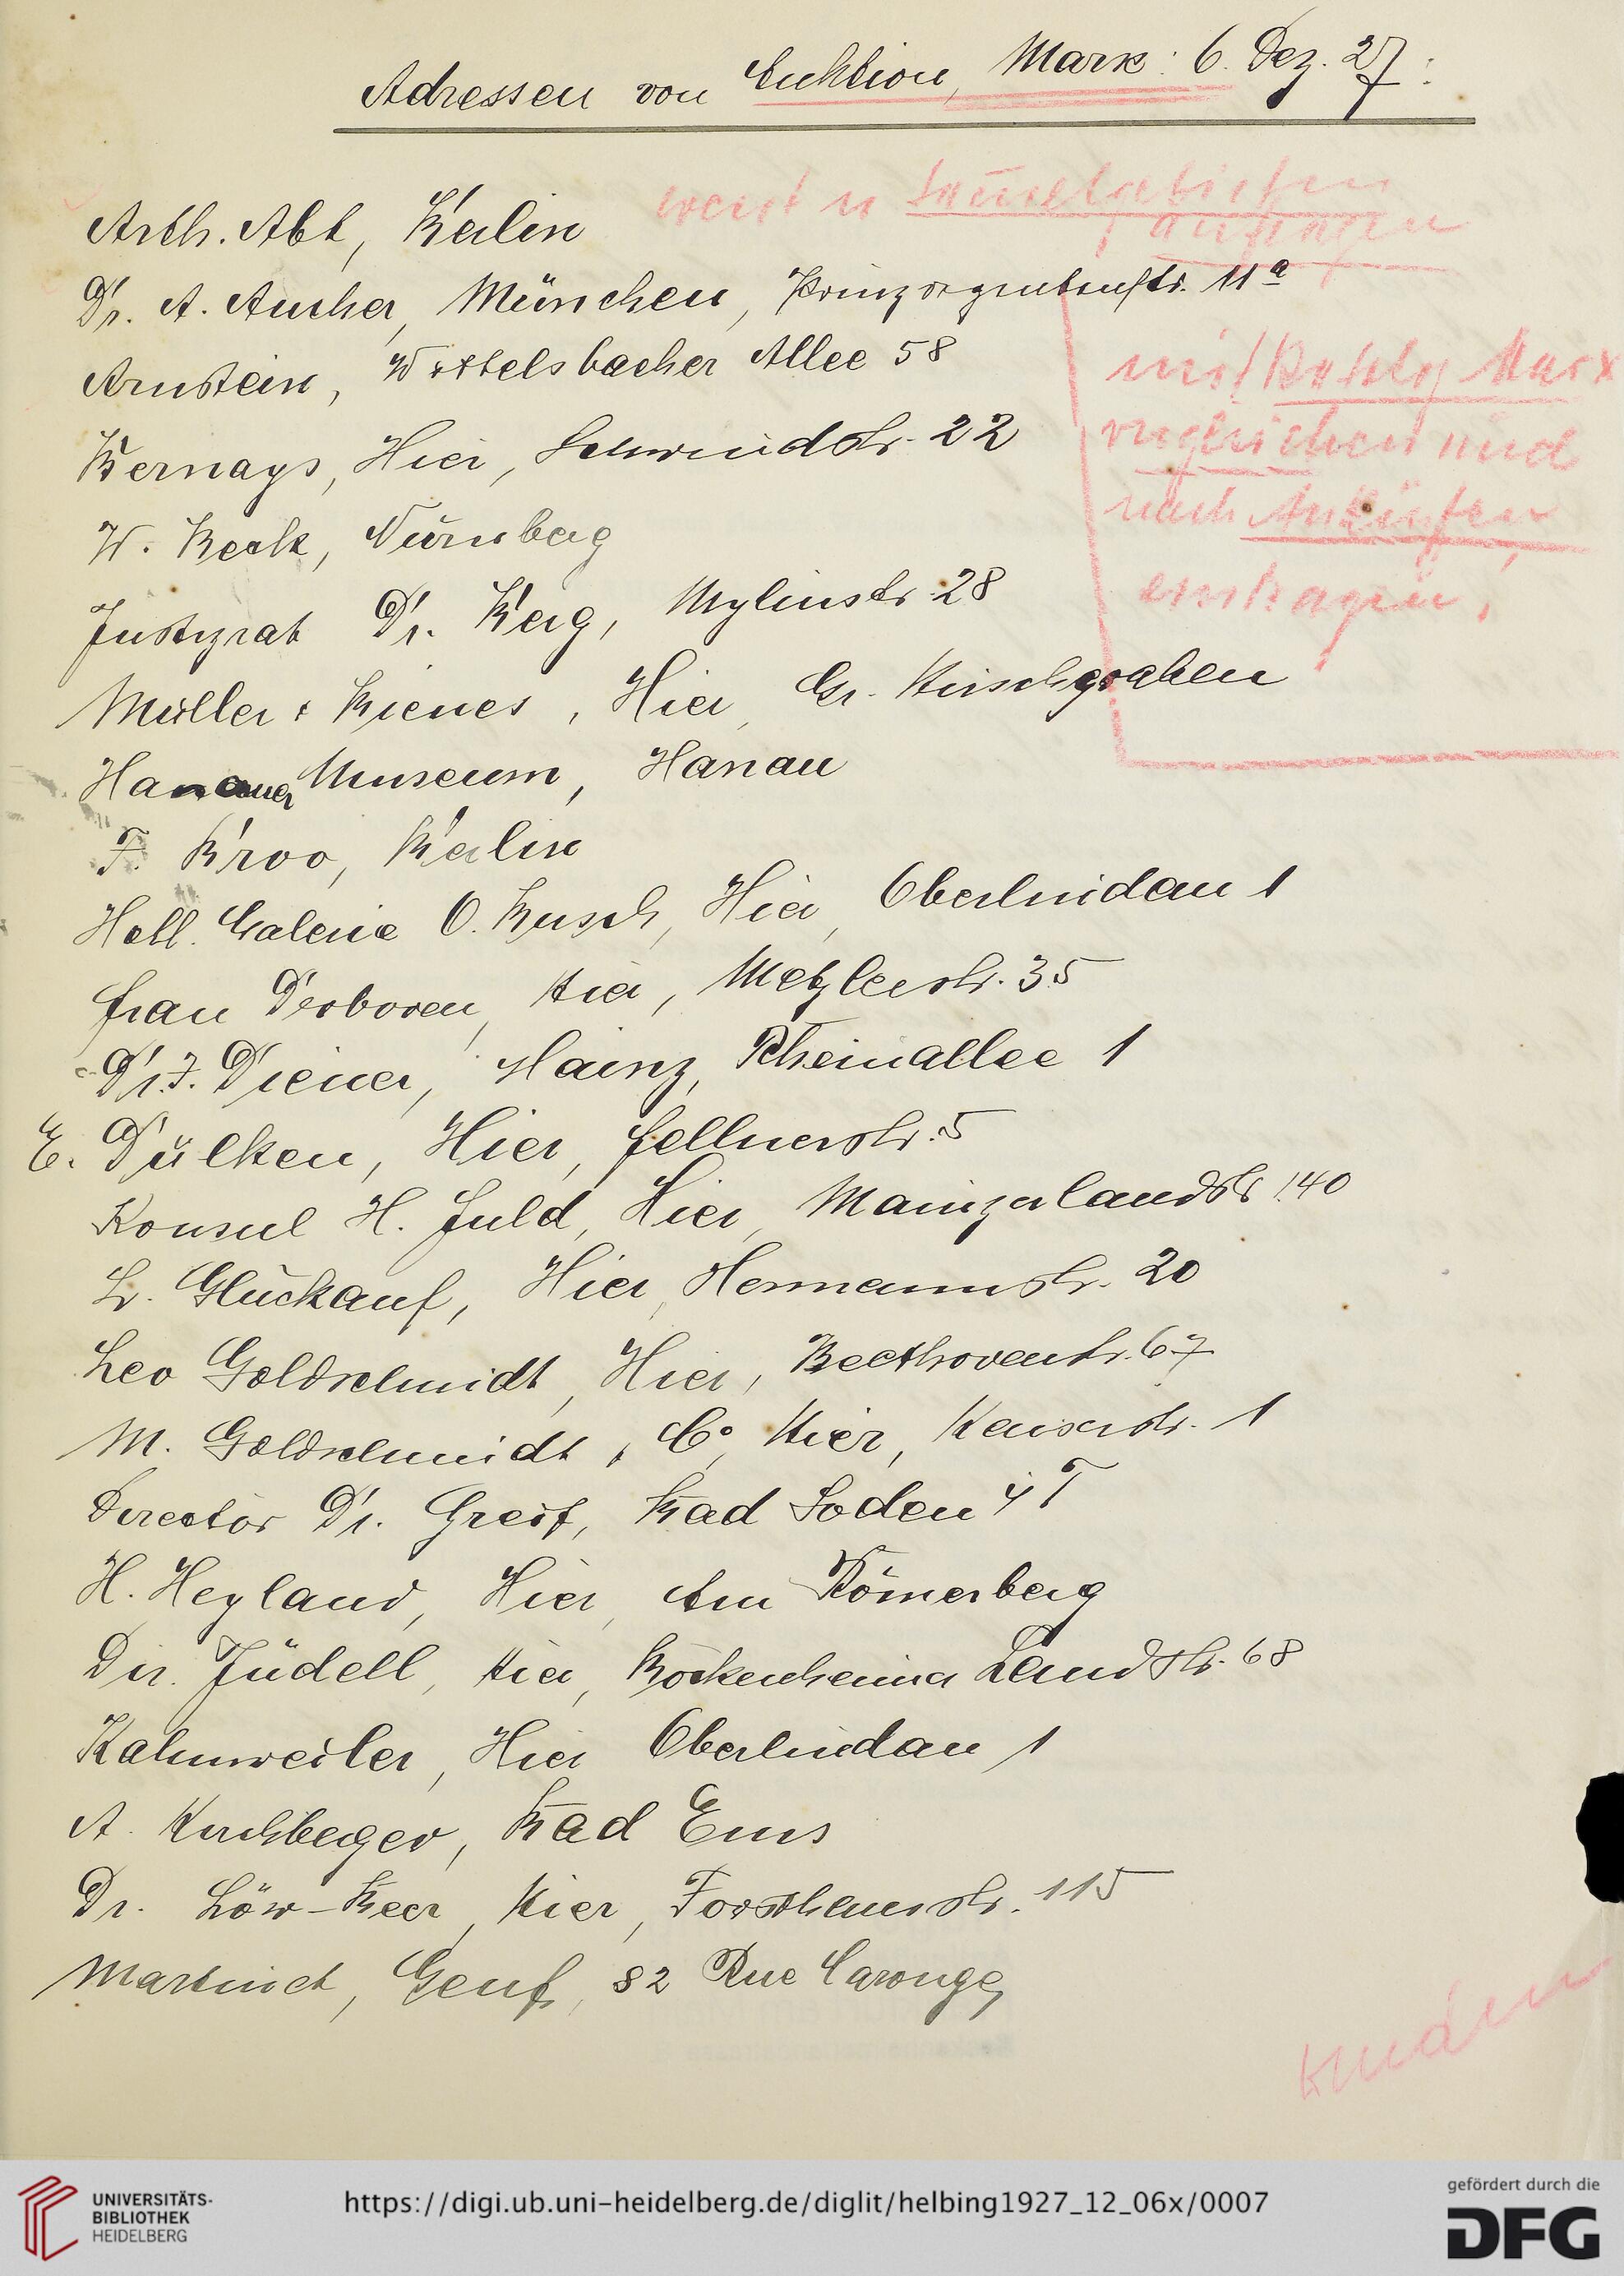 Adressen von Auktion, Marx: 6. Dez. 27:
Arth. Abt, Berlin
Dr. A. Aucher, München, Prinzregentenstr. 11a
Arnstein, Wittelsbacher Allee 58
mit Katalog Marx
Bernays, Hier, Schwindstr. 22
vergleichen und
W. Beck, Nürnberg
nach Ankäufen
Justizrat Dr. Berg, Myliusstr. 28
eintragen.
Müller & Bienes, Hier, Gr. Hirschgraben
Hanauer Museum, Hanau
F. Broo, Berlin
Holl. Galerie O. Busch, Hier, Oberlindau 1
Frau Derboven, Hier, Metzlerstr. 35
Dr. F. Diener, Mainz, Rheinallee 1
E. Dülken, Hier, Fellnerstr. 5
Konsul H. Fuld, Hier, Mainzerlandstr. 140
L. Glückauf, Hier, Hermannstr. 20
Leo Goldschmidt, Hier, Beethovenstr. 67
M. Goldschmidt & Co, Hier, Kaiserstr. 1
Director Dr. Greif, Bad Soden
H. Heyland, Hier, Am Römerberg
Dir. Jüdell, Hier, Bockenheimer Landstr. 68
Kahnweiler, Hier Oberlindau 1
A. Kirchberger, Bad Ems
Dr. Löw-Beer, Hier, Forsthausstr. 115
Martinet, Genf, 82 Rue Carouge,
Kunden
UNIVERSITÄTS-
BIBLIOTHEK
HEIDELBERG
https://digi.ub.uni-heidelberg.de/diglit/helbing1927_12_06x/0007
gefördert durch die
DFG